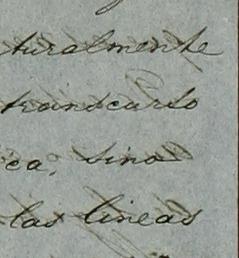 turalmente
transcurso
ca, sino
las lineas